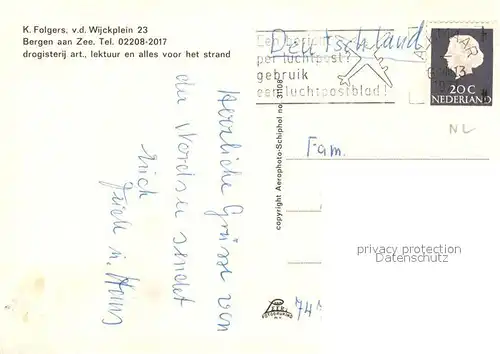 K. Folgers, v.d. Wijckplein 23
Bergen aan Zee. Tel. 02208-2017
drogisterij art., lektuur en alles voor het strand
Deutschland
per luchtpost?
gebruik
een luchtpostblad!
ALKMAAR
20 C
NEDERLAND
NL
Herzliche Grüsse von
der Nordsee sendet
Fam.
copyright Aerophoto-Schiphol no. 31108
privacy protection
Datenschutz
74